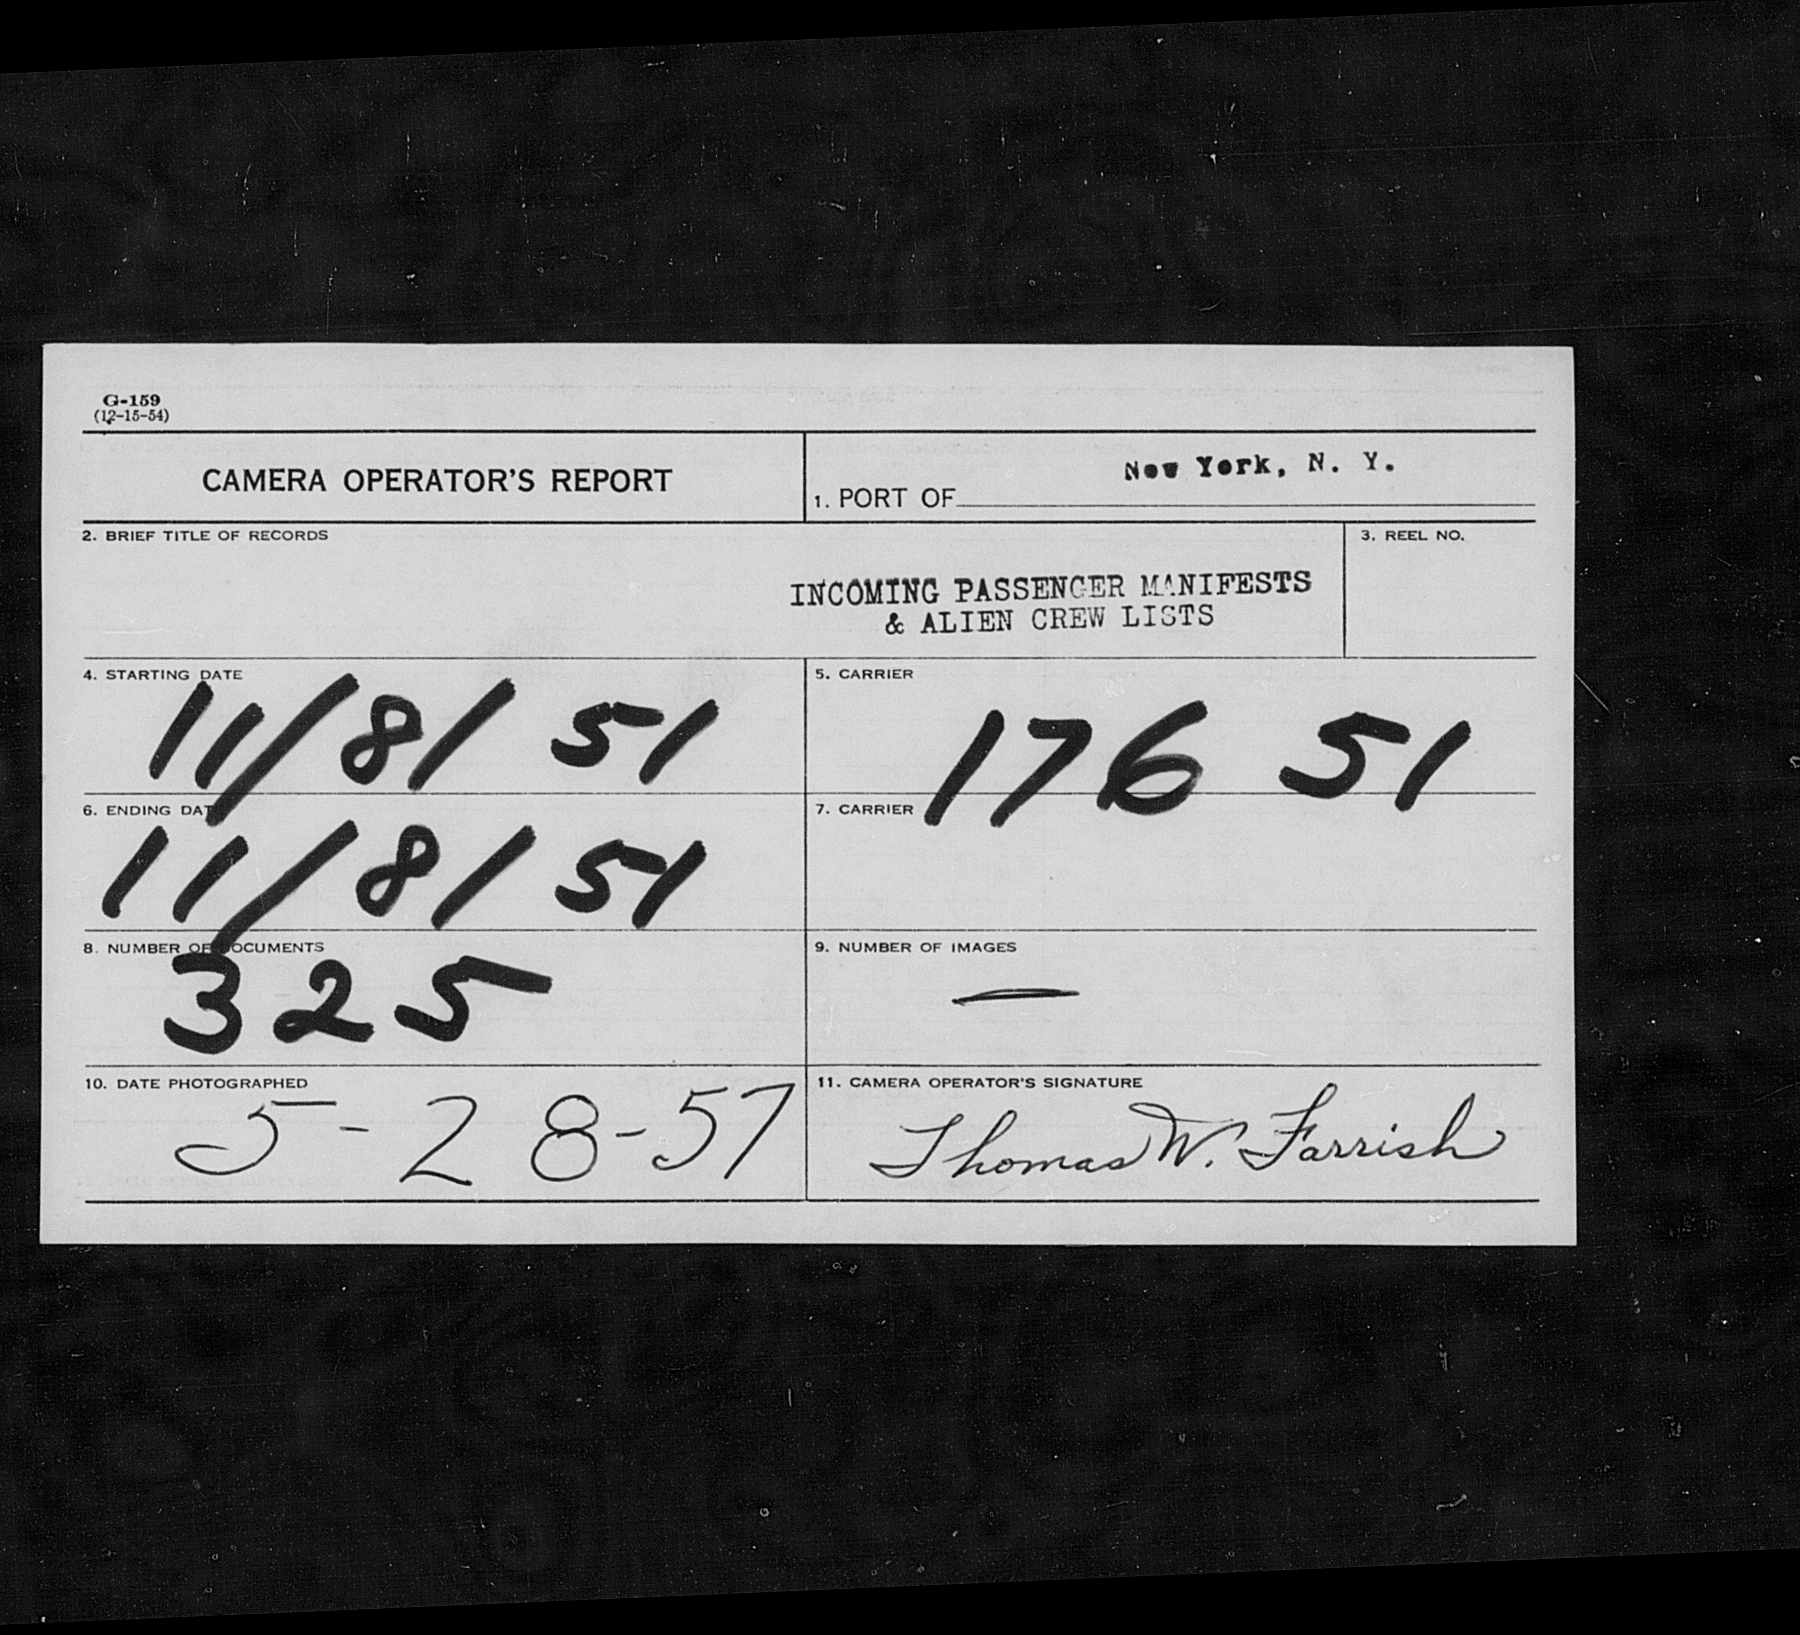 G-159
(12-15-54)
CAMERA OPERATOR'S REPORT
1. PORT OF New York, N. Y.
2. BRIEF TITLE OF RECORDS
3. REEL NO.
INCOMING PASSENGER MANIFESTS
& ALIEN CREW LISTS
4. STARTING DATE
11/8/51
5. CARRIER
176 51
6. ENDING DATE
11/8/51
7. CARRIER
8. NUMBER OF DOCUMENTS
325
9. NUMBER OF IMAGES
—
10. DATE PHOTOGRAPHED
5-28-57
11. CAMERA OPERATOR'S SIGNATURE
Thomas W. Farrish